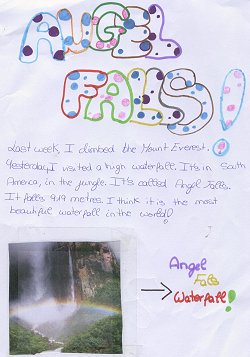 ANGEL
FALLS!
Last week, I climbed the Mount Everest.
Yesterday I visited a high waterfall. It's in South
America, in the jungle. It's called Angel Falls.
It falls 979 metres. I think it is the most
beautiful waterfall in the world!
Angel
Falls
Waterfall!